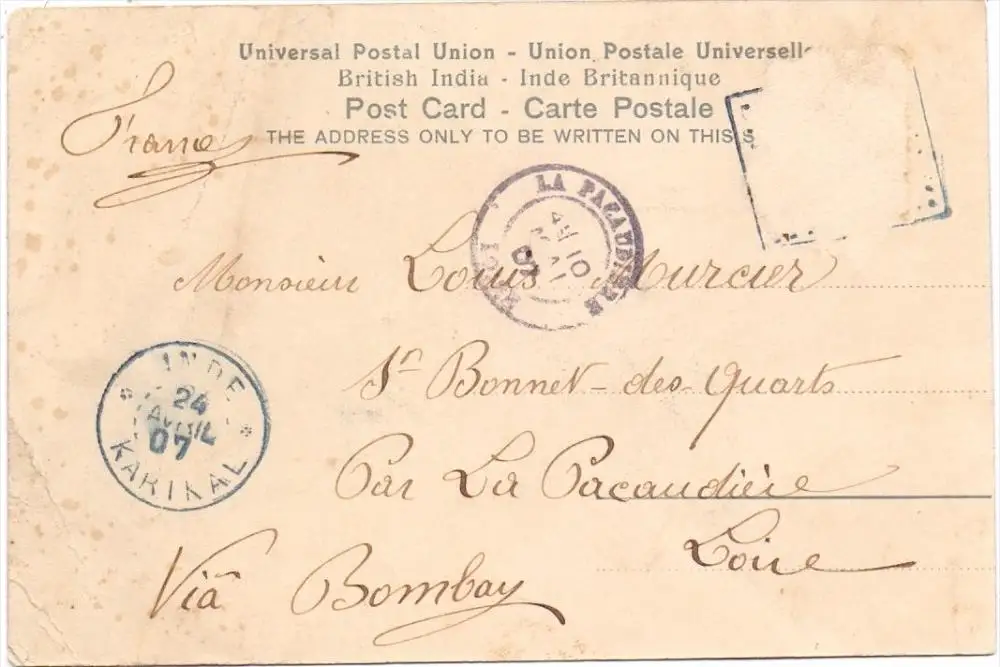 Universal Postal Union - Union Postale Universelle
British India - Inde Britannique
Post Card - Carte Postale
THE ADDRESS ONLY TO BE WRITTEN ON THIS S
France
LA PACAUDIERE
10
MAI
07
LOIRE
Monsieur Louis Murcier
St Bonnet-des-Quarts
Par La Pacaudière
Loire
INDE
24
AVRIL
07
KARIKAL
Viâ Bombay